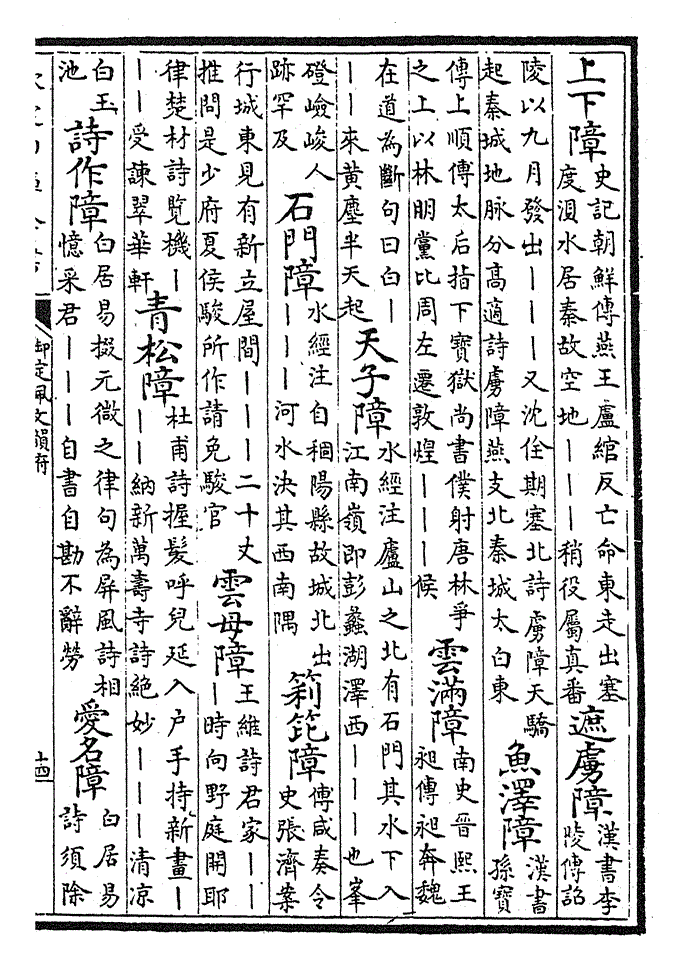 上下障
史記朝鮮傳燕王盧綰反亡命東走出塞
度浿水居秦故空地———稍役屬真番
遮虜障
漢書李
陵傳詔
陵以九月發出———又沈佺期塞北詩虜障天驕
起秦城地脉分高適詩虜障燕支北秦城太白東
魚澤障
漢書
孫寶
傳上順傅太后指下寶獄尚書僕射唐林爭
之上以林朋黨比周左遷敦煌———候
雲滿障
南史晉熙王
昶傳昶奔魏
在道為斷句曰白—
——來黃塵半天起
天子障
水經注廬山之北有石門其水下入
江南嶺即彭蠡湖澤西———也峯
磴嶮峻人
跡罕及
石門障
水經注自稒陽縣故城北出
———河水決其西南隅
箣笓障
傅咸奏令
史張濟案
行城東見有新立屋間———二十丈
推問是少府夏侯駿所作請免駿官
雲母障
王維詩君家——
—時向野庭開耶
律楚材詩覽機—
——受諫翠華軒
青松障
杜甫詩握髮呼兒延入户手持新畫—
——納新萬壽寺詩絕妙———清凉
白玉
池
詩作障
白居易掇元微之律句為屏風詩相
憶采君———自書自勘不辭勞
愛名障
白居易
詩須除
御定佩文韻府
十四